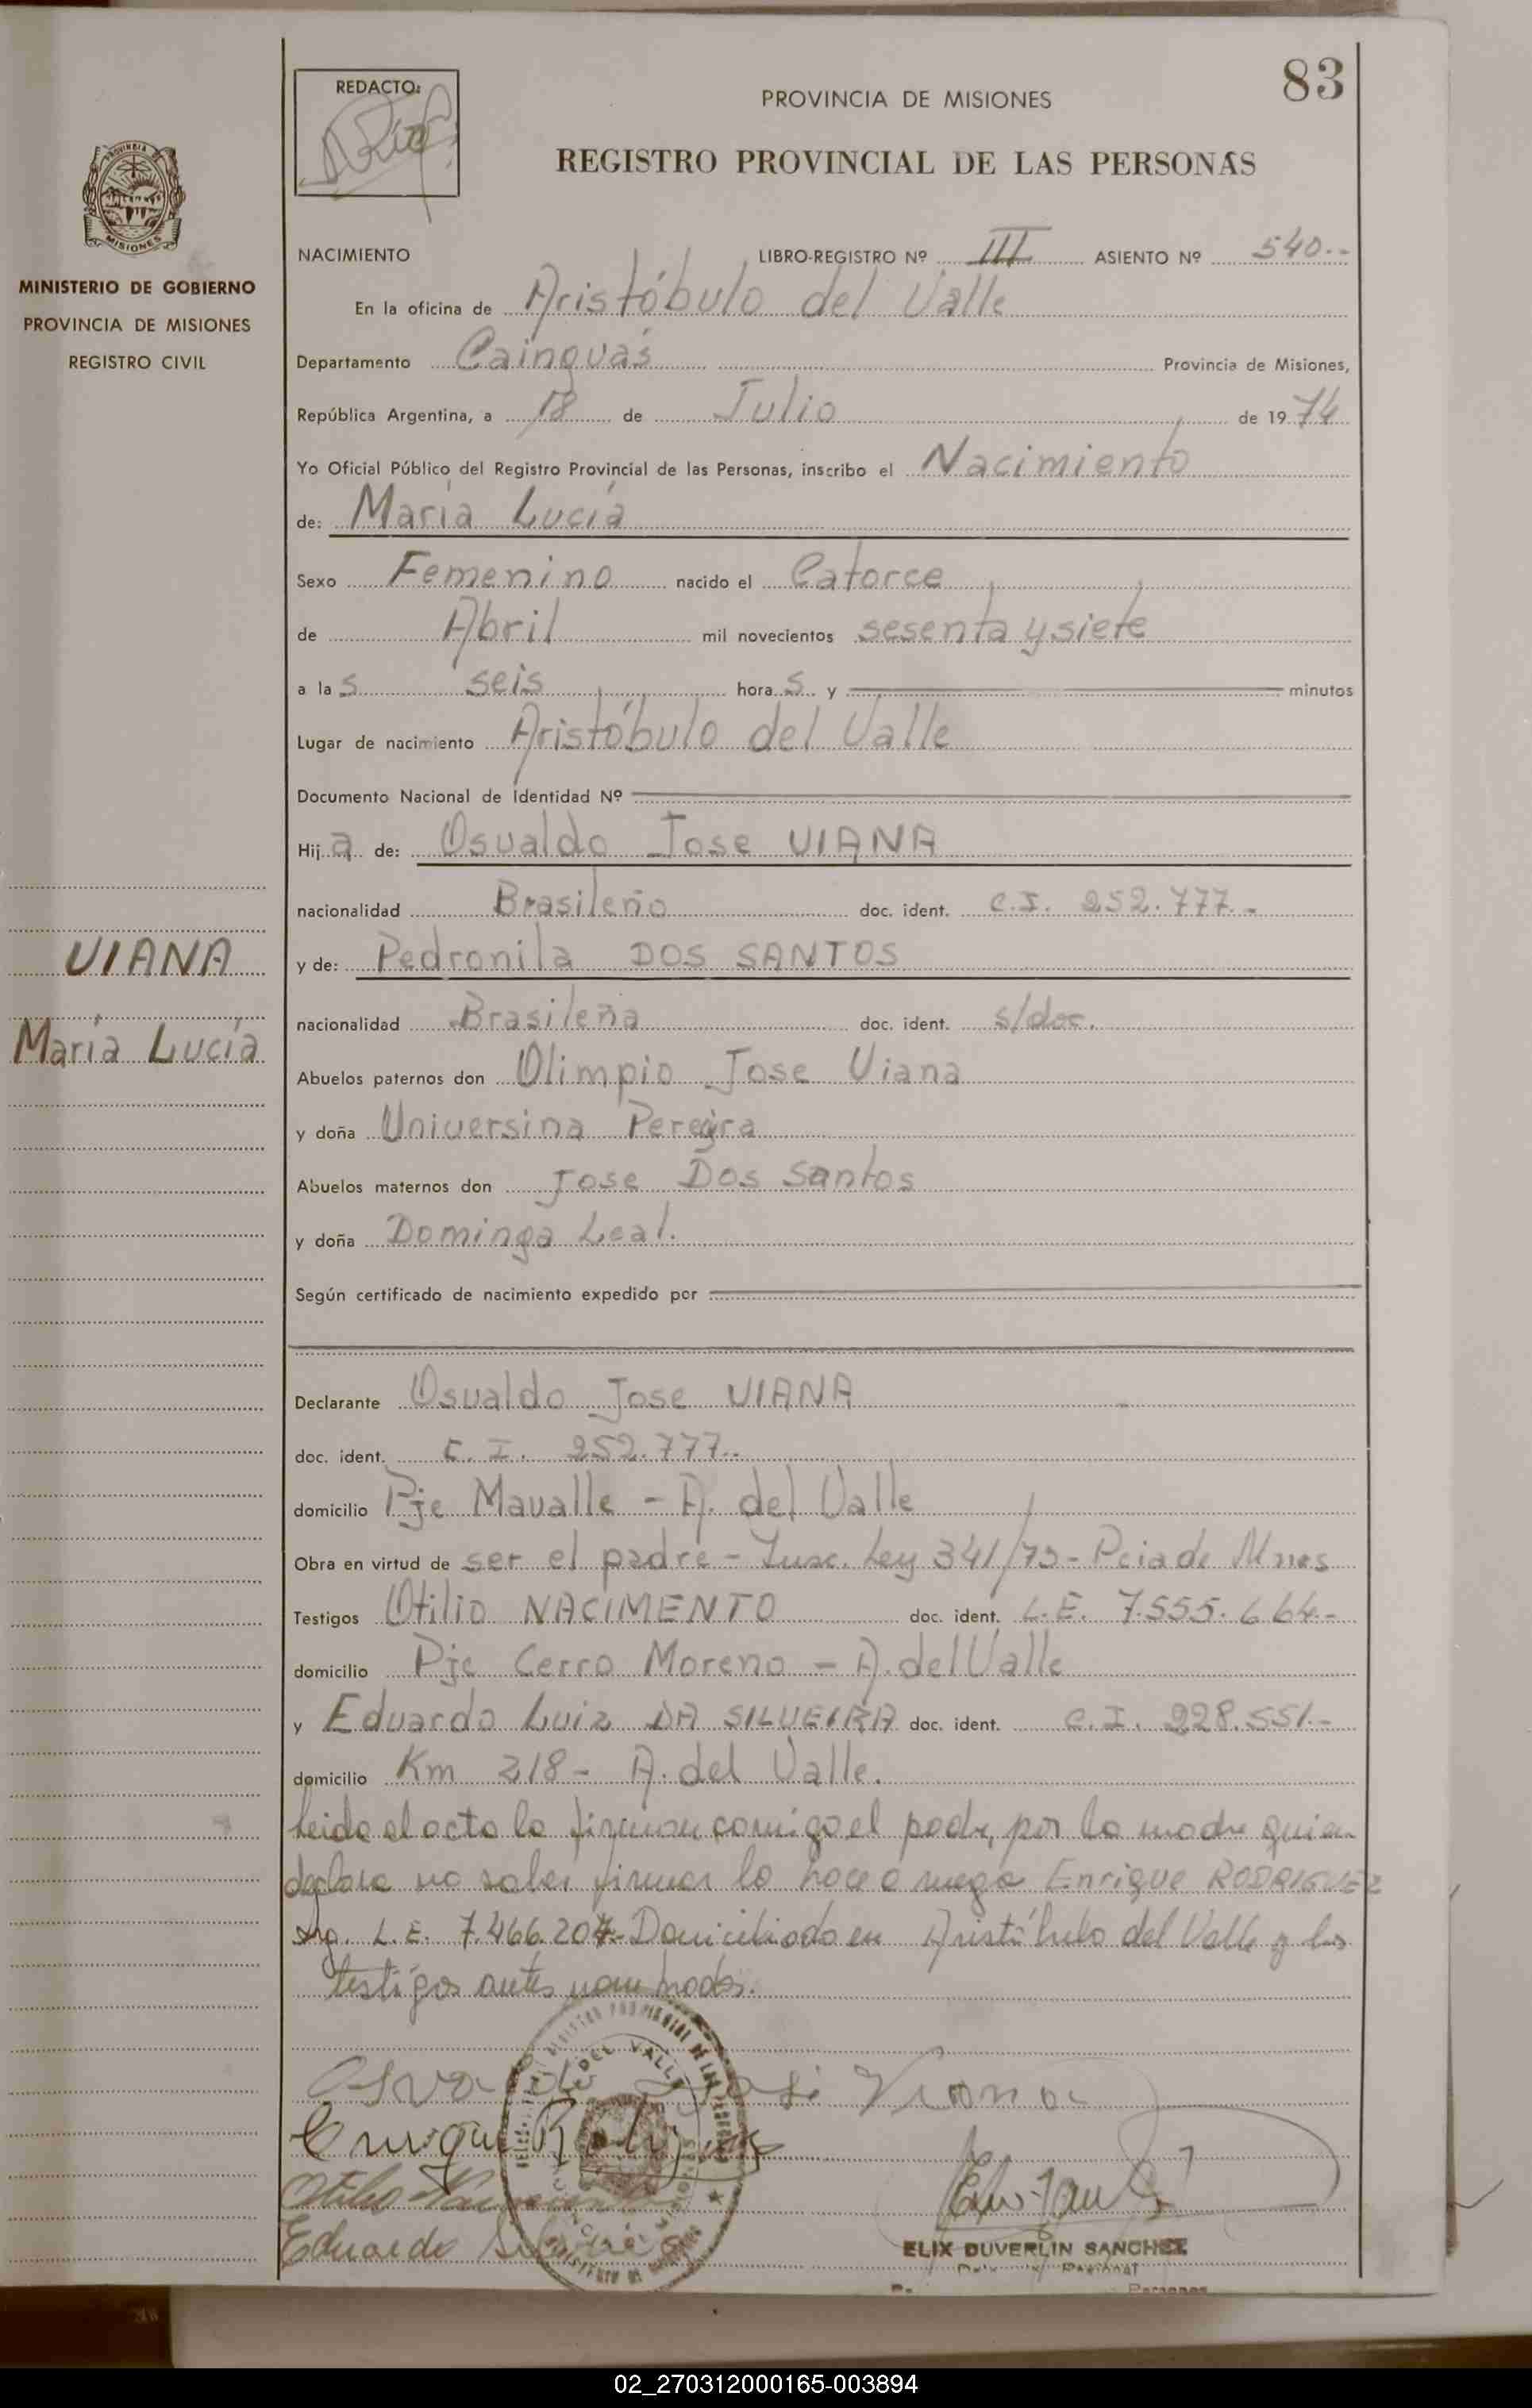 83
REDACTO:
PROVINCIA DE MISIONES
REGISTRO PROVINCIAL DE LAS PERSONAS
MISIONES
MINISTERIO DE GOBIERNO
PROVINCIA DE MISIONES
REGISTRO CIVIL
NACIMIENTO LIBRO-REGISTRO Nº III ASIENTO Nº 540--
En la oficina de Aristóbulo del Valle
Departamento Cainguás Provincia de Misiones,
República Argentina, a 18 de Julio de 1974
Yo Oficial Público del Registro Provincial de las Personas, inscribo el Nacimiento
de: María Lucía
Sexo Femenino nacido el Catorce
de Abril mil novecientos sesenta y siete
a las seis horas y minutos
Lugar de nacimiento Aristóbulo del Valle
Documento Nacional de Identidad Nº
Hija de: Osualdo Jose VIANA
nacionalidad Brasileño doc. ident. C.I. 252.777.-
VIANA
y de: Pedronila DOS SANTOS
María Lucía
nacionalidad Brasileña doc. ident. s/doc.
Abuelos paternos don Olimpio Jose Viana
y doña Universina
Abuelos maternos don Jose Dos Santos
y doña Dominga Leal.
Según certificado de nacimiento expedido por
Declarante Osualdo Jose VIANA
doc. ident. C.I. 252.777.-
domicilio Pje Mavalle - A. del Valle
Obra en virtud de ser el padre - Ley 341/ - Pcia de Mnes
Testigos Otilio NACIMENTO doc. ident. L.E. 7.555.664.-
domicilio Pje Cerro Moreno - A. del Valle
y Eduardo Luiz DA SILVEIRA doc. ident. C.I. 228.551.-
domicilio Km 218 - A. del Valle.
leida el acta la firman comigo el padre, por la madre quien
declara no saber firmar lo hace a ruego Enrique RODRIGUEZ
Arg. L.E. 7.466.207.- Domiciliado en Aristóbulo del Valle y los
testigos antes nombrados.
Osvaldo José Viana
Enrique Rodriguez
Eduardo
ELIX DUVERLIN SANCHEZ
02_270312000165-003894